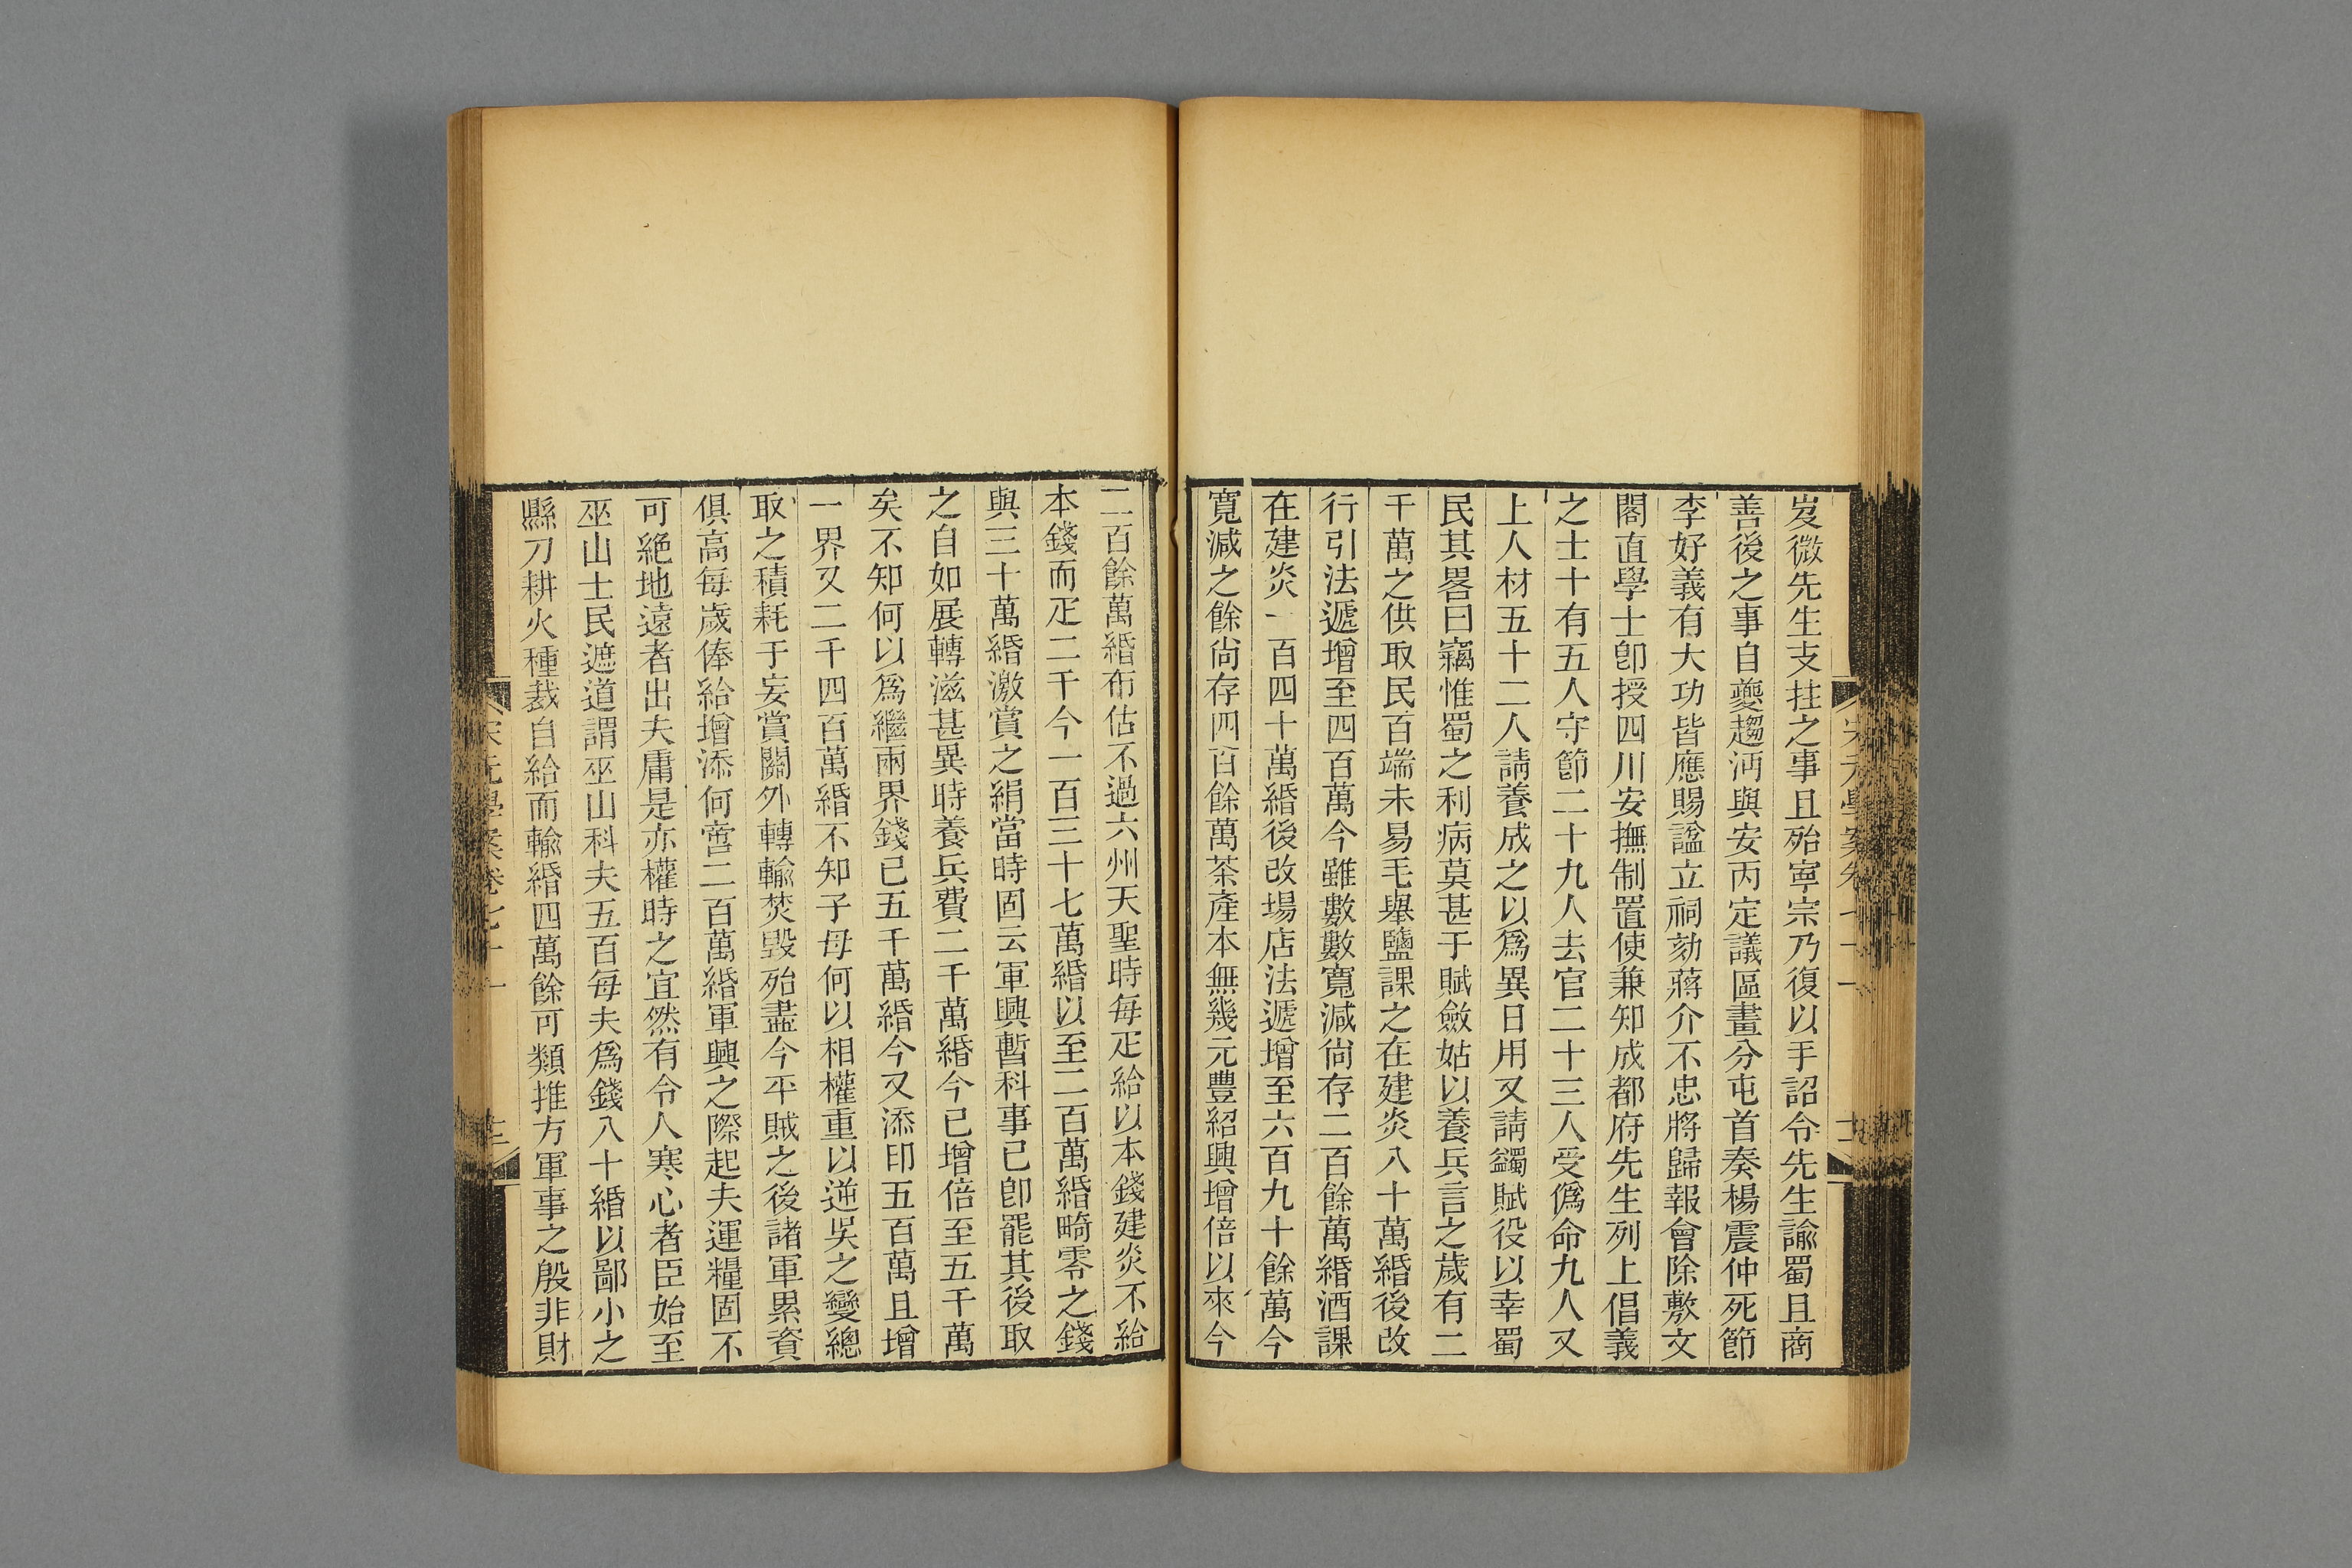 岌微先生支拄之事且殆寧宗乃復以手詔令先生諭蜀且商
善後之事自夔趨沔與安丙定議區畫分屯首奏楊震仲死節
李好義有大功皆應賜諡立祠劾蔣介不忠將歸報會除敷文
閣直學士卽授四川安撫制置使兼知成都府先生列上倡義
之士十有五人守節二十九人去官二十三人受僞命九人又
上人材五十二人請養成之以爲異日用又請蠲賦役以幸蜀
民其畧曰竊惟蜀之利病莫甚于賦斂姑以養兵言之歲有二
千萬之供取民百端未易毛舉鹽課之在建炎八十萬緡後改
行引法遞增至四百萬今雖數數寬減尙存二百餘萬緡酒課
在建炎一百四十萬緡後改場店法遞增至六百九十餘萬今
寬減之餘尙存四百餘萬茶產本無幾元豐紹興增倍以來今
二百餘萬緡布估不過六州天聖時每疋給以本錢建炎不給
本錢而疋二千今一百三十七萬緡以至二百萬緡畸零之錢
與三十萬緡激賞之絹當時固云軍興暫科事已卽罷其後取
之自如展轉滋甚異時養兵費二千萬緡今已增倍至五千萬
矣不知何以爲繼兩界錢已五千萬緡今又添印五百萬且增
一界又二千四百萬緡不知子母何以相權重以逆吳之變總
取之積耗于妄賞關外轉輸焚毀殆盡今平賊之後諸軍累資
俱高每歲俸給增添何啻二百萬緡軍興之際起夫運糧固不
可絕地遠者出夫庸是亦權時之宜然有令人寒心者臣始至
巫山士民遮道謂巫山科夫五百每夫爲錢八十緡以鄙小之
縣刀耕火種裁自給而輸緡四萬餘可類推方軍事之殷非財
宋元學案卷七十一